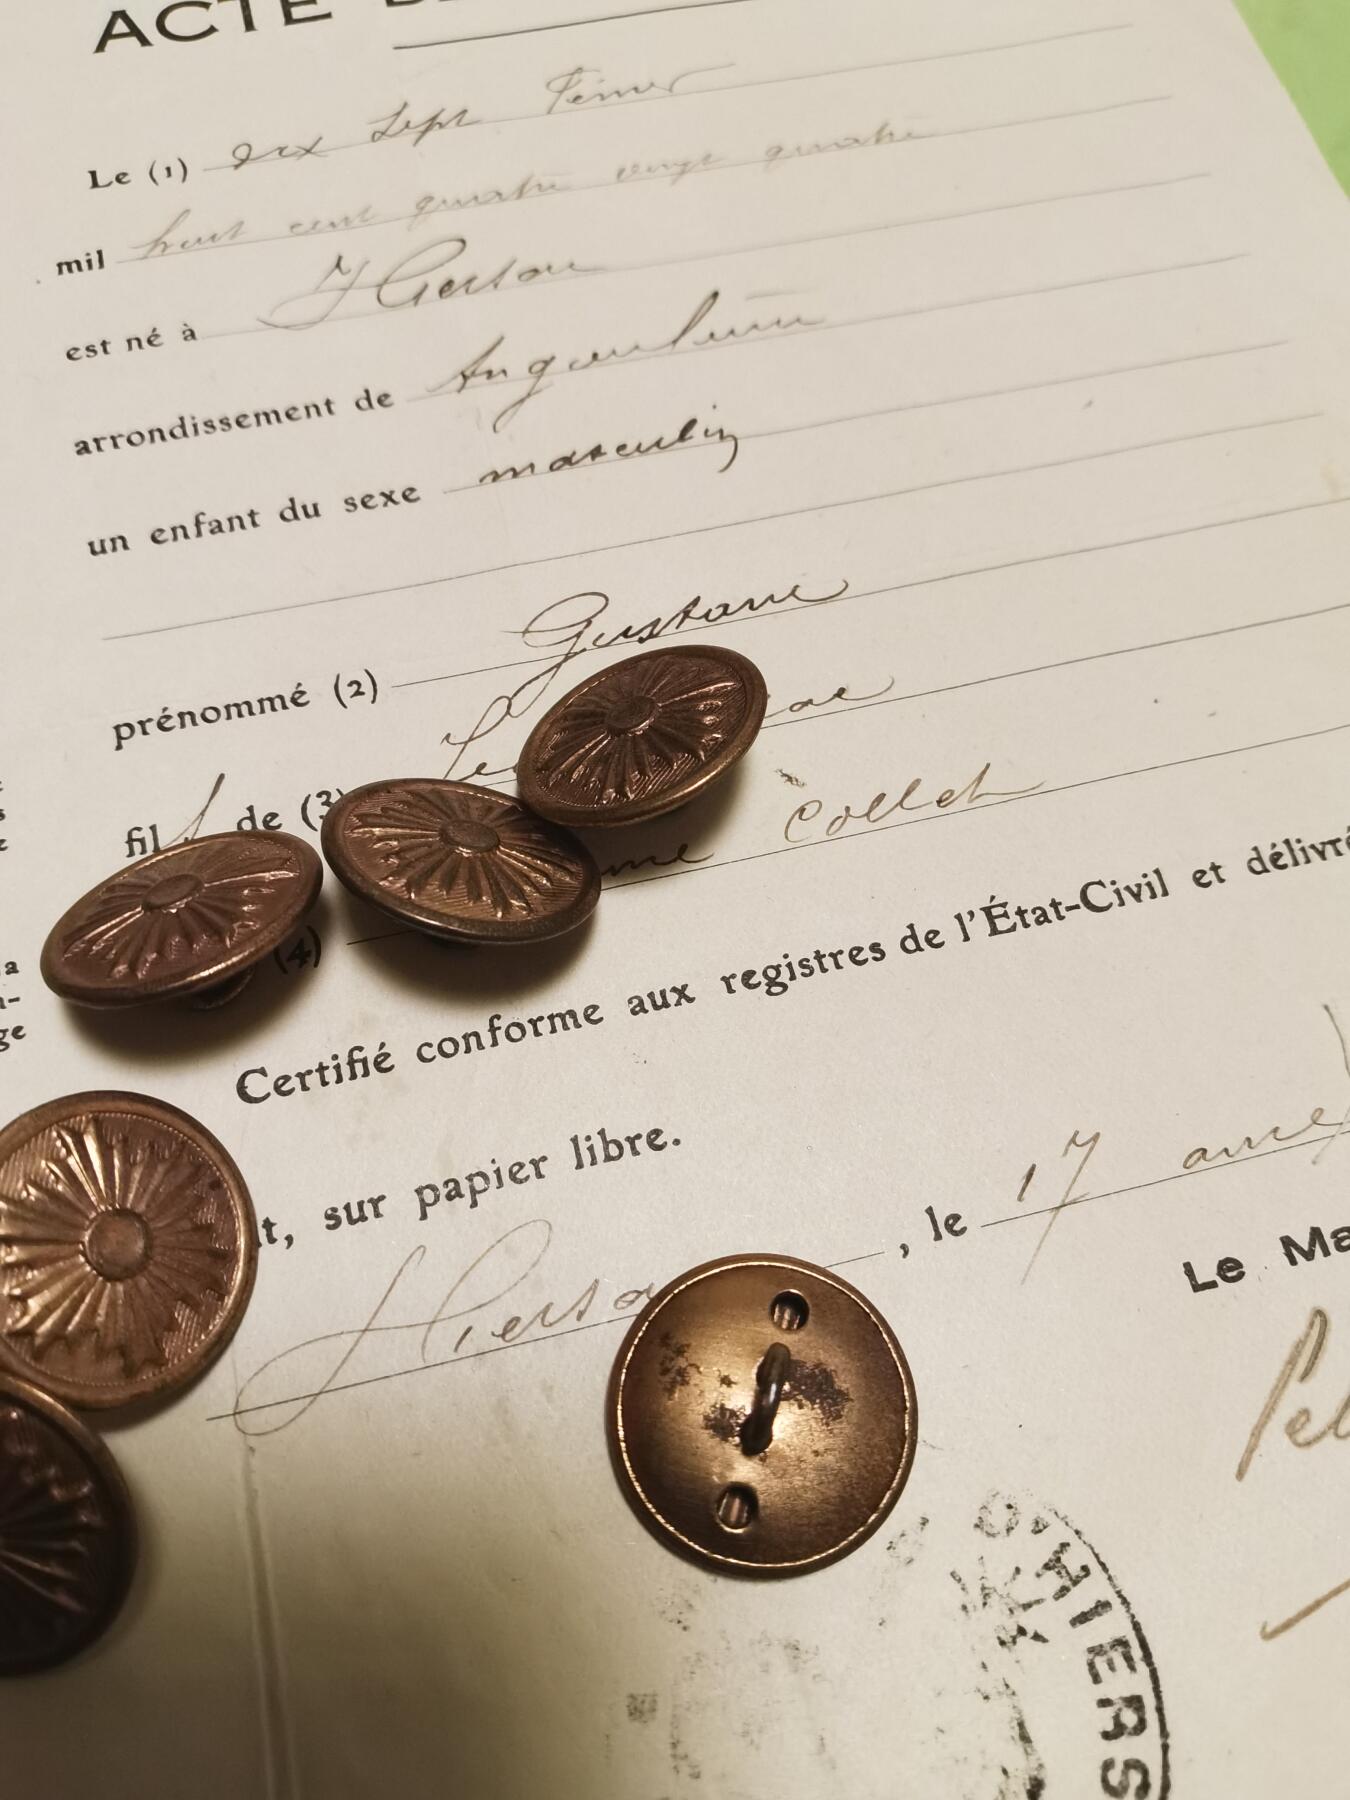 ACTE
Le (1) dix sept février
mil huit cent quatre vingt quatre
est né à Hiersac
arrondissement de Angoulême
un enfant du sexe masculin
prénommé (2) Gustave
fils de (3)
Collet
(4)
Certifié conforme aux registres de l'État-Civil et délivré
t, sur papier libre.
Hiersa , le 17
Le Ma
D'HIERS
a
ge